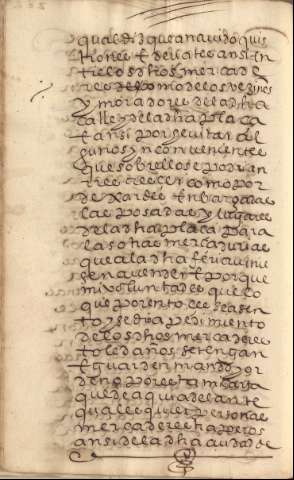 qual diz que an avido quis
tiones e debates ansi en
tre los dhos mercade
res como de los vezinos
y moradores de la dha
calle y de la dha plaça
e ansi por se vitar al
gunos ynconvenientes
que sobre llo se podrian
crecer como por
dexar de enbargadas
las posadas y lugares
de la dha plaça para
las dhas mercadurias
que a la dha feria vinie
sen a vender e porque
mi voluntad es que lo
que por entoces
to y se dio a pedimiento
de los dhos mercaderes
toledanos se tengan
e guarden mando y or
deno por esta mi carta
que de aqui adelante
quales quier personas
mercaderes hateros
ansi de la dha ciudad de